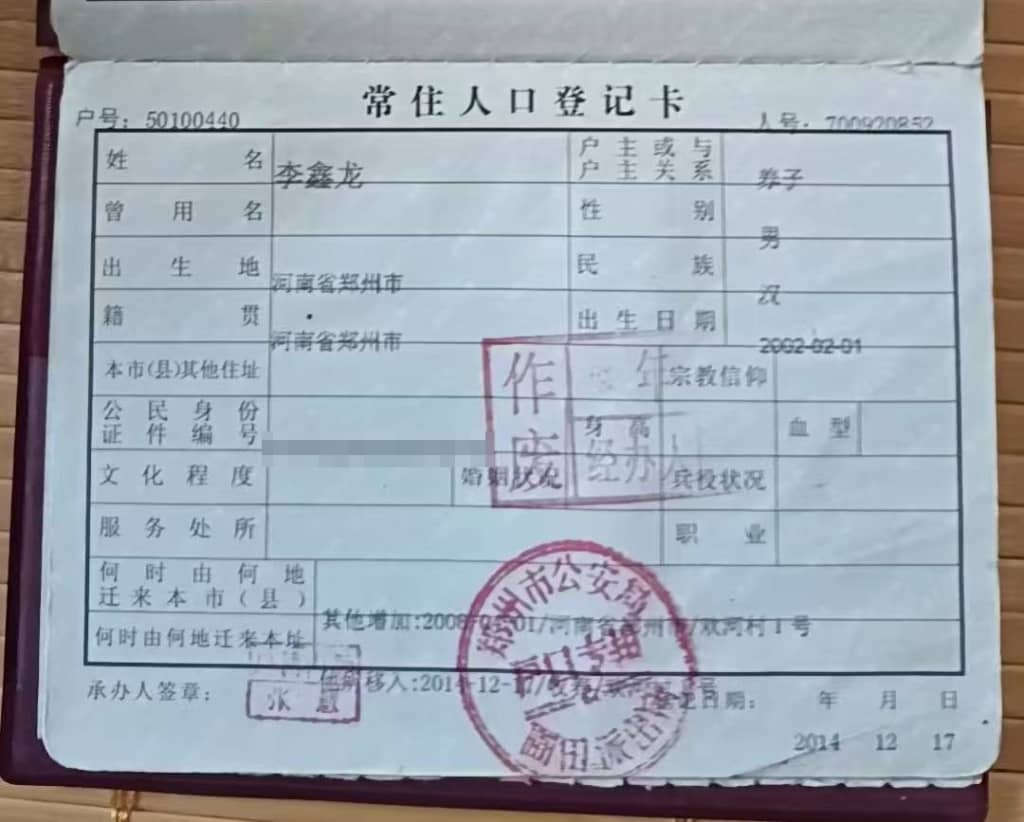 常住人口登记卡
户号: 50100440 人号: 700920852
姓名 李鑫龙 户主或与户主关系 养子
曾用名 性别 男
出生地 河南省郑州市 民族 汉
籍贯 河南省郑州市 出生日期 2002-02-01
本市(县)其他住址 宗教信仰
公民身份证件编号 身高 血型
文化程度 婚姻状况 兵役状况
服务处所 职业
作废
经办人
何时由何地迁来本市(县) 其他增加:2008 01/河南省 州市 /双河村1号
何时由何地迁来本址 移入:2014-12-1
承办人签章: 张 登记日期: 年 月 日
2014 12 17
郑州市公安局
户口专用
派出所